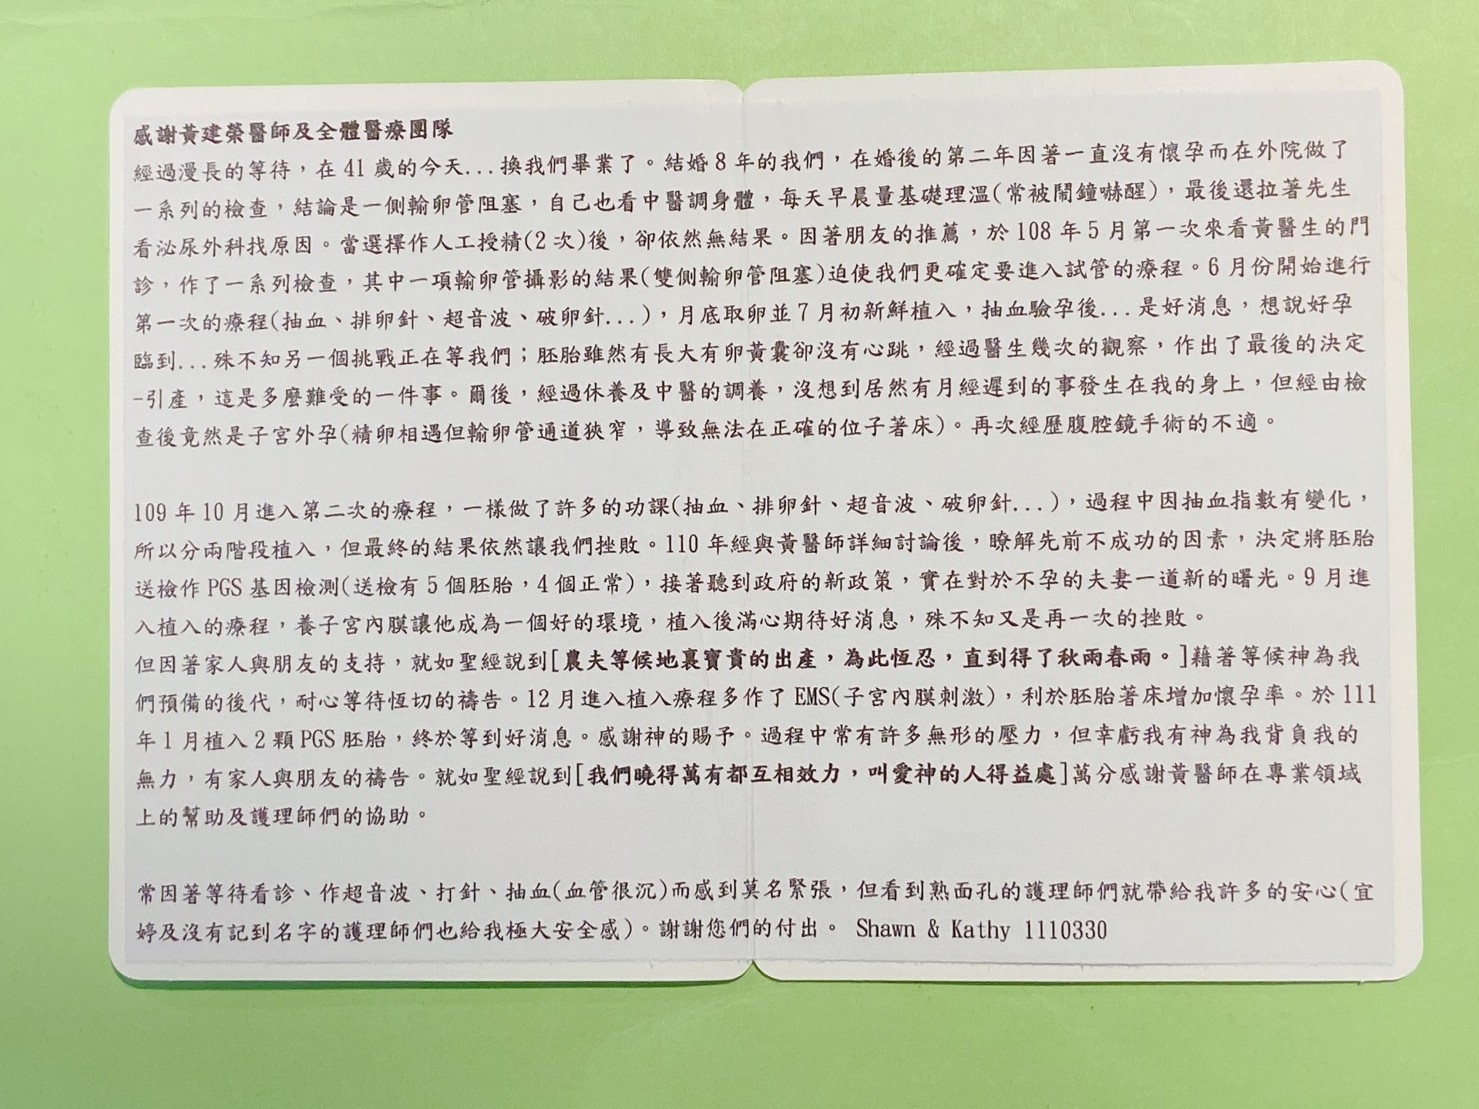 感謝黃建榮醫師及全體醫療團隊
經過漫長的等待，在 41 歲的今天...換我們畢業了。結婚 8 年的我們，在婚後的第二年因著一直沒有懷孕而在外院做了
一系列的檢查，結論是一側輸卵管阻塞，自己也看中醫調身體，每天早晨量基礎理溫(常被鬧鐘嚇醒)，最後還拉著先生
看泌尿外科找原因。當選擇作人工授精(2 次)後，卻依然無結果。因著朋友的推薦，於 108 年 5 月第一次來看黃醫生的門
診，作了一系列檢查，其中一項輸卵管攝影的結果(雙側輸卵管阻塞)迫使我們更確定要進入試管的療程。6 月份開始進行
第一次的療程(抽血、排卵針、超音波、破卵針...)，月底取卵並 7 月初新鮮植入，抽血驗孕後...是好消息，想說好孕
臨到...殊不知另一個挑戰正在等我們；胚胎雖然有長大有卵黃囊卻沒有心跳，經過醫生幾次的觀察，作出了最後的決定
-引產，這是多麼難受的一件事。爾後，經過休養及中醫的調養，沒想到居然有月經遲到的事發生在我的身上，但經由檢
查後竟然是子宮外孕(精卵相遇但輸卵管通道狹窄，導致無法在正確的位子著床)。再次經歷腹腔鏡手術的不適。
109 年 10 月進入第二次的療程，一樣做了許多的功課(抽血、排卵針、超音波、破卵針...)，過程中因抽血指數有變化，
所以分兩階段植入，但最終的結果依然讓我們挫敗。110 年經與黃醫師詳細討論後，瞭解先前不成功的因素，決定將胚胎
送檢作 PGS 基因檢測(送檢有 5 個胚胎，4 個正常)，接著聽到政府的新政策，實在對於不孕的夫妻一道新的曙光。9 月進
入植入的療程，養子宮內膜讓他成為一個好的環境，植入後滿心期待好消息，殊不知又是再一次的挫敗。
但因著家人與朋友的支持，就如聖經說到[農夫等候地裏寶貴的出產，為此恆忍，直到得了秋雨春雨。]藉著等候神為我
們預備的後代，耐心等待恆切的禱告。12 月進入植入療程多作了 EMS(子宮內膜刺激)，利於胚胎著床增加懷孕率。於 111
年 1 月植入 2 顆 PGS 胚胎，終於等到好消息。感謝神的賜予。過程中常有許多無形的壓力，但幸虧我有神為我背負我的
無力，有家人與朋友的禱告。就如聖經說到[我們曉得萬有都互相效力，叫愛神的人得益處]萬分感謝黃醫師在專業領域
上的幫助及護理師們的協助。
常因著等待看診、作超音波、打針、抽血(血管很沉)而感到莫名緊張，但看到熟面孔的護理師們就帶給我許多的安心(宜
婷及沒有記到名字的護理師們也給我極大安全感)。謝謝您們的付出。 Shawn & Kathy 1110330